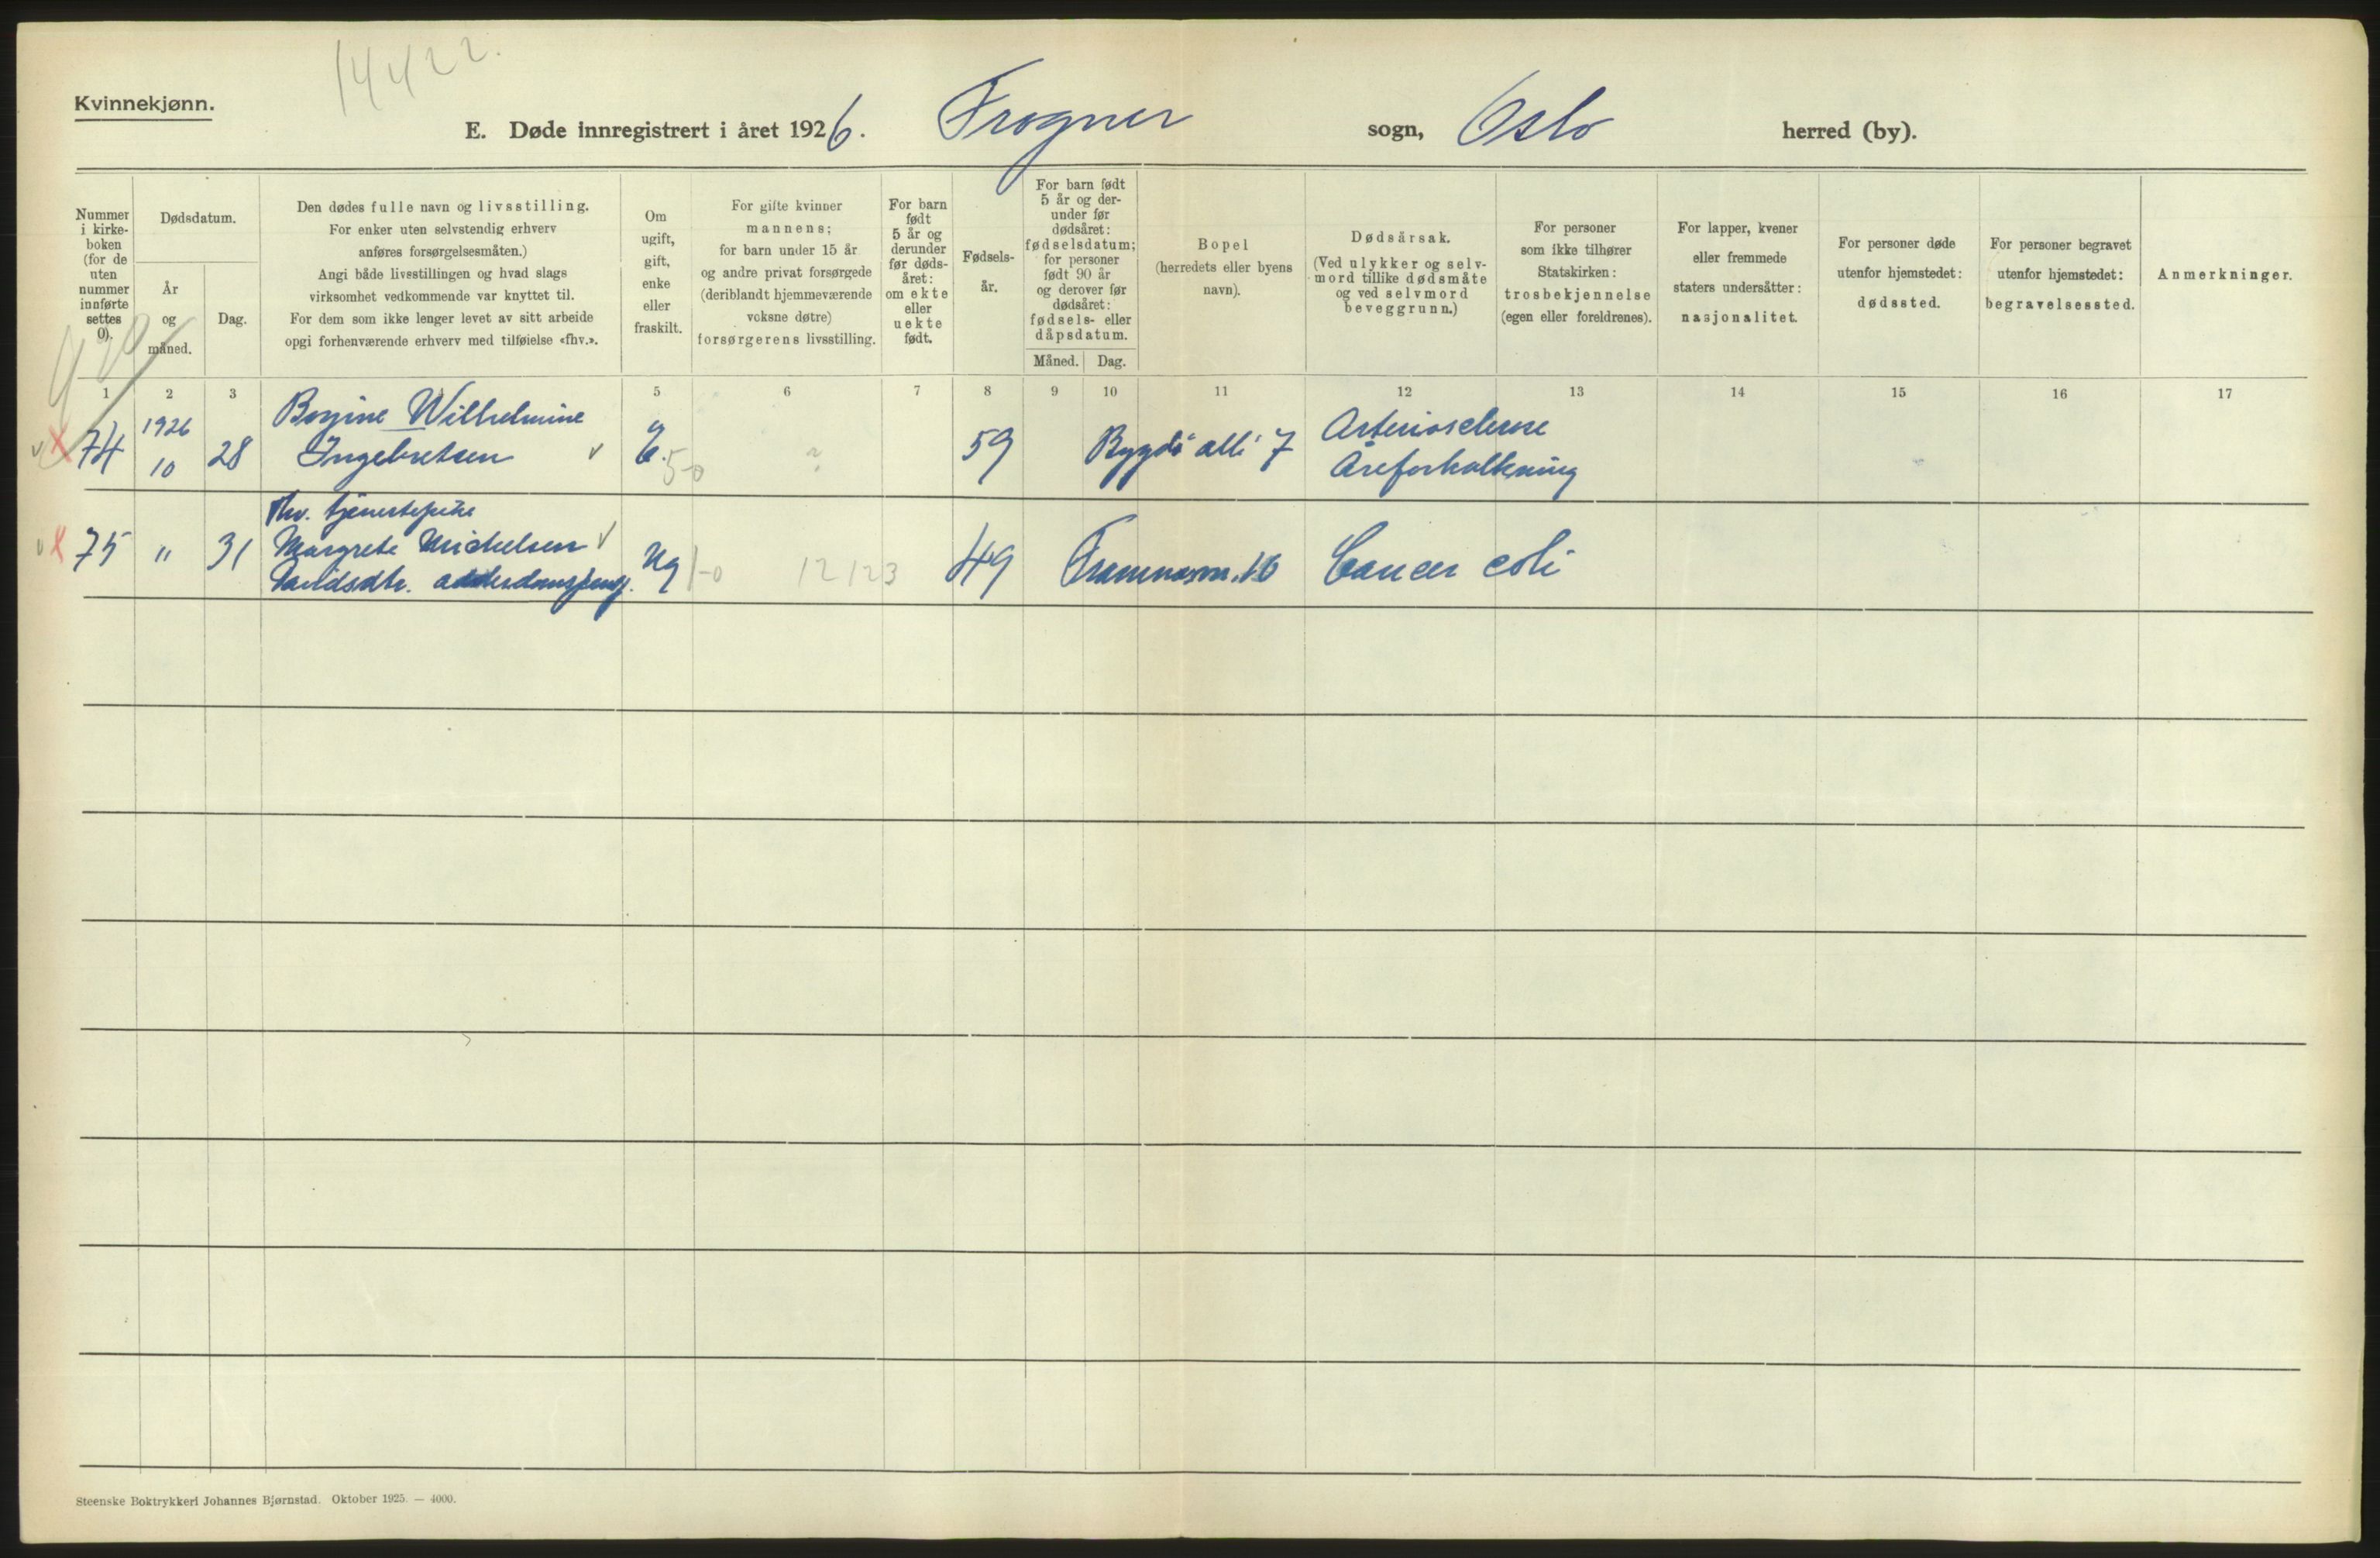 14422.
Kvinnekjønn.
E. Døde innregistrert i året 1926. Frogner sogn, Oslo herred (by).
Nummer
i kirke-
boken
(for de
uten
nummer
innførte
settes
0).
Dødsdatum.
År
og
måned.
Dag.
Den dødes fulle navn og livsstilling.
For enker uten selvstendig erhverv
anføres forsørgelsesmåten.)
Angi både livsstillingen og hvad slags
virksomhet vedkommende var knyttet til.
For dem som ikke lenger levet av sitt arbeide
opgi forhenværende erhverv med tilføielse «fhv.».
Om
ugift,
gift,
enke
eller
fraskilt.
For gifte kvinner
mannens;
for barn under 15 år
og andre privat forsørgede
(deriblandt hjemmeværende
voksne døtre)
forsørgerens livsstilling.
For barn
født
5 år og
derunder
før døds-
året:
om ekte
eller
uekte
født.
Fødsels-
år.
For barn født
5 år og der-
under før
dødsåret:
fødselsdatum;
for personer
født 90 år
og derover før
dødsåret:
fødsels- eller
dåpsdatum.
Måned. Dag.
Bopel
(herredets eller byens
navn).
Dødsårsak.
(Ved ulykker og selv-
mord tillike dødsmåte
og ved selvmord
beveggrunn.)
For personer
som ikke tilhører
Statskirken:
trosbekjennelse
(egen eller foreldrenes).
For lapper, kvener
eller fremmede
staters undersåtter:
nasjonalitet.
For personer døde
utenfor hjemstedet:
dødssted.
For personer begravet
utenfor hjemstedet:
begravelsessted.
Anmerkninger.
1 2 3 5 6 7 8 9 10 11 12 13 14 15 16 17
74 1926 10 28 Wilhelmine
Ingebretsen E. 5-0 ? 59 Bygdö allé 7 Arteriosclerose
Åreforkalkning
Fhv. tjenestepike
75 " 31 Margrete Michelsen Ug 1-0 12123 49 10 Cancer coli
Davidsdtr.
Steenske Boktrykkeri Johannes Bjørnstad. Oktober 1925. — 4000.